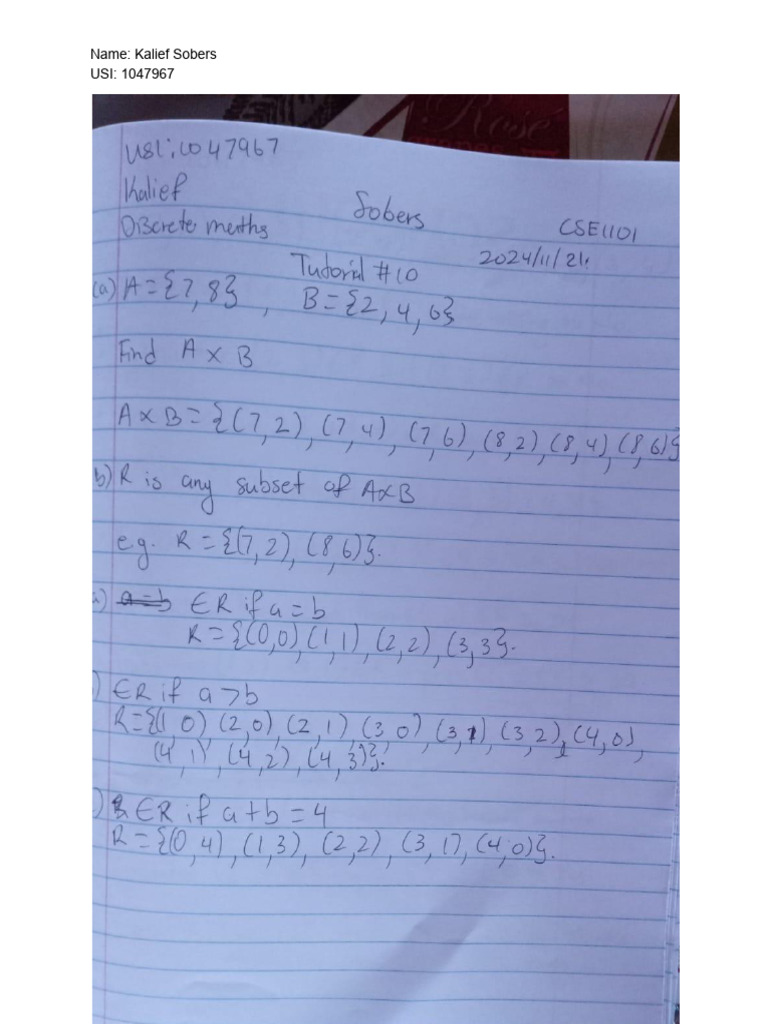 Name: Kalief Sobers
USI: 1047967
Rosé
USI: 1047967
Kalief Sobers
Discrete maths CSE1101
2024/11/21.
Tutorial #10
(a) A = {7, 8}, B = {2, 4, 6}
Find A x B
A x B = {(7,2), (7,4), (7,6), (8,2), (8,4), (8,6)}
b) R is any subset of AxB
e.g. R = {(7,2), (8,6)}.
) a=b ∈R if a = b
R = {(0,0), (1,1), (2,2), (3,3}.
) ∈R if a > b
R = {(1,0), (2,0), (2,1), (3,0), (3,1), (3,2), (4,0),
(4,1), (4,2), (4,3)}.
) ∈R if a + b = 4
R = {(0,4), (1,3), (2,2), (3,1), (4,0)}.